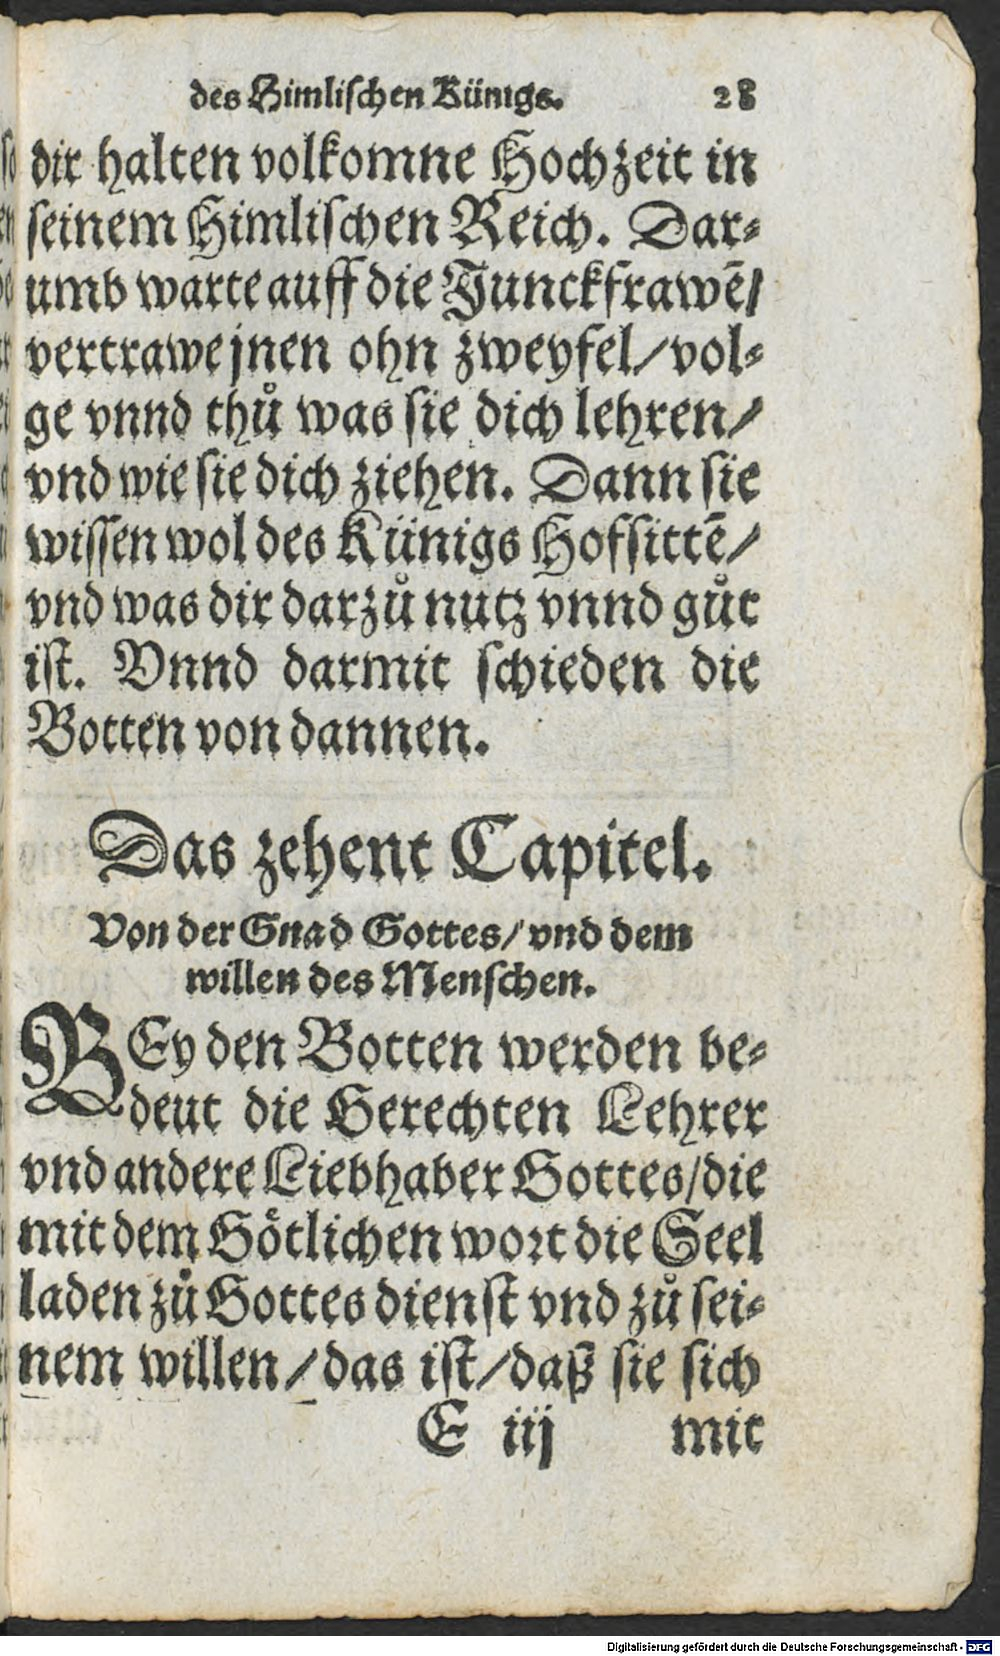 des Himlischen Künigs. 28
dir halten volkomne Hochzeit in
seinem Himlischen Reich. Dar⸗
umb warte auff die Junckfrawē/
vertrawe jnen ohn zweyfel/ vol⸗
ge vnnd thů was sie dich lehren/
vnd wie sie dich ziehen. Dann sie
wissen wol des Künigs Hofsittē/
vnd was dir darzů nutz vnnd gůt
ist. Vnnd darmit schieden die
Botten von dannen.
Das zehent Capitel.
Von der Gnad Gottes/ vnd dem
willen des Menschen.
BEy den Botten werden be⸗
deut die Gerechten Lehrer
vnd andere Liebhaber Gottes/ die
mit dem Goͤtlichen wort die Seel
laden zů Gottes dienst vnd zů sei⸗
nem willen/ das ist/ daß sie sich
E iij mit
Digitalisierung gefördert durch die Deutsche Forschungsgemeinschaft - DFG